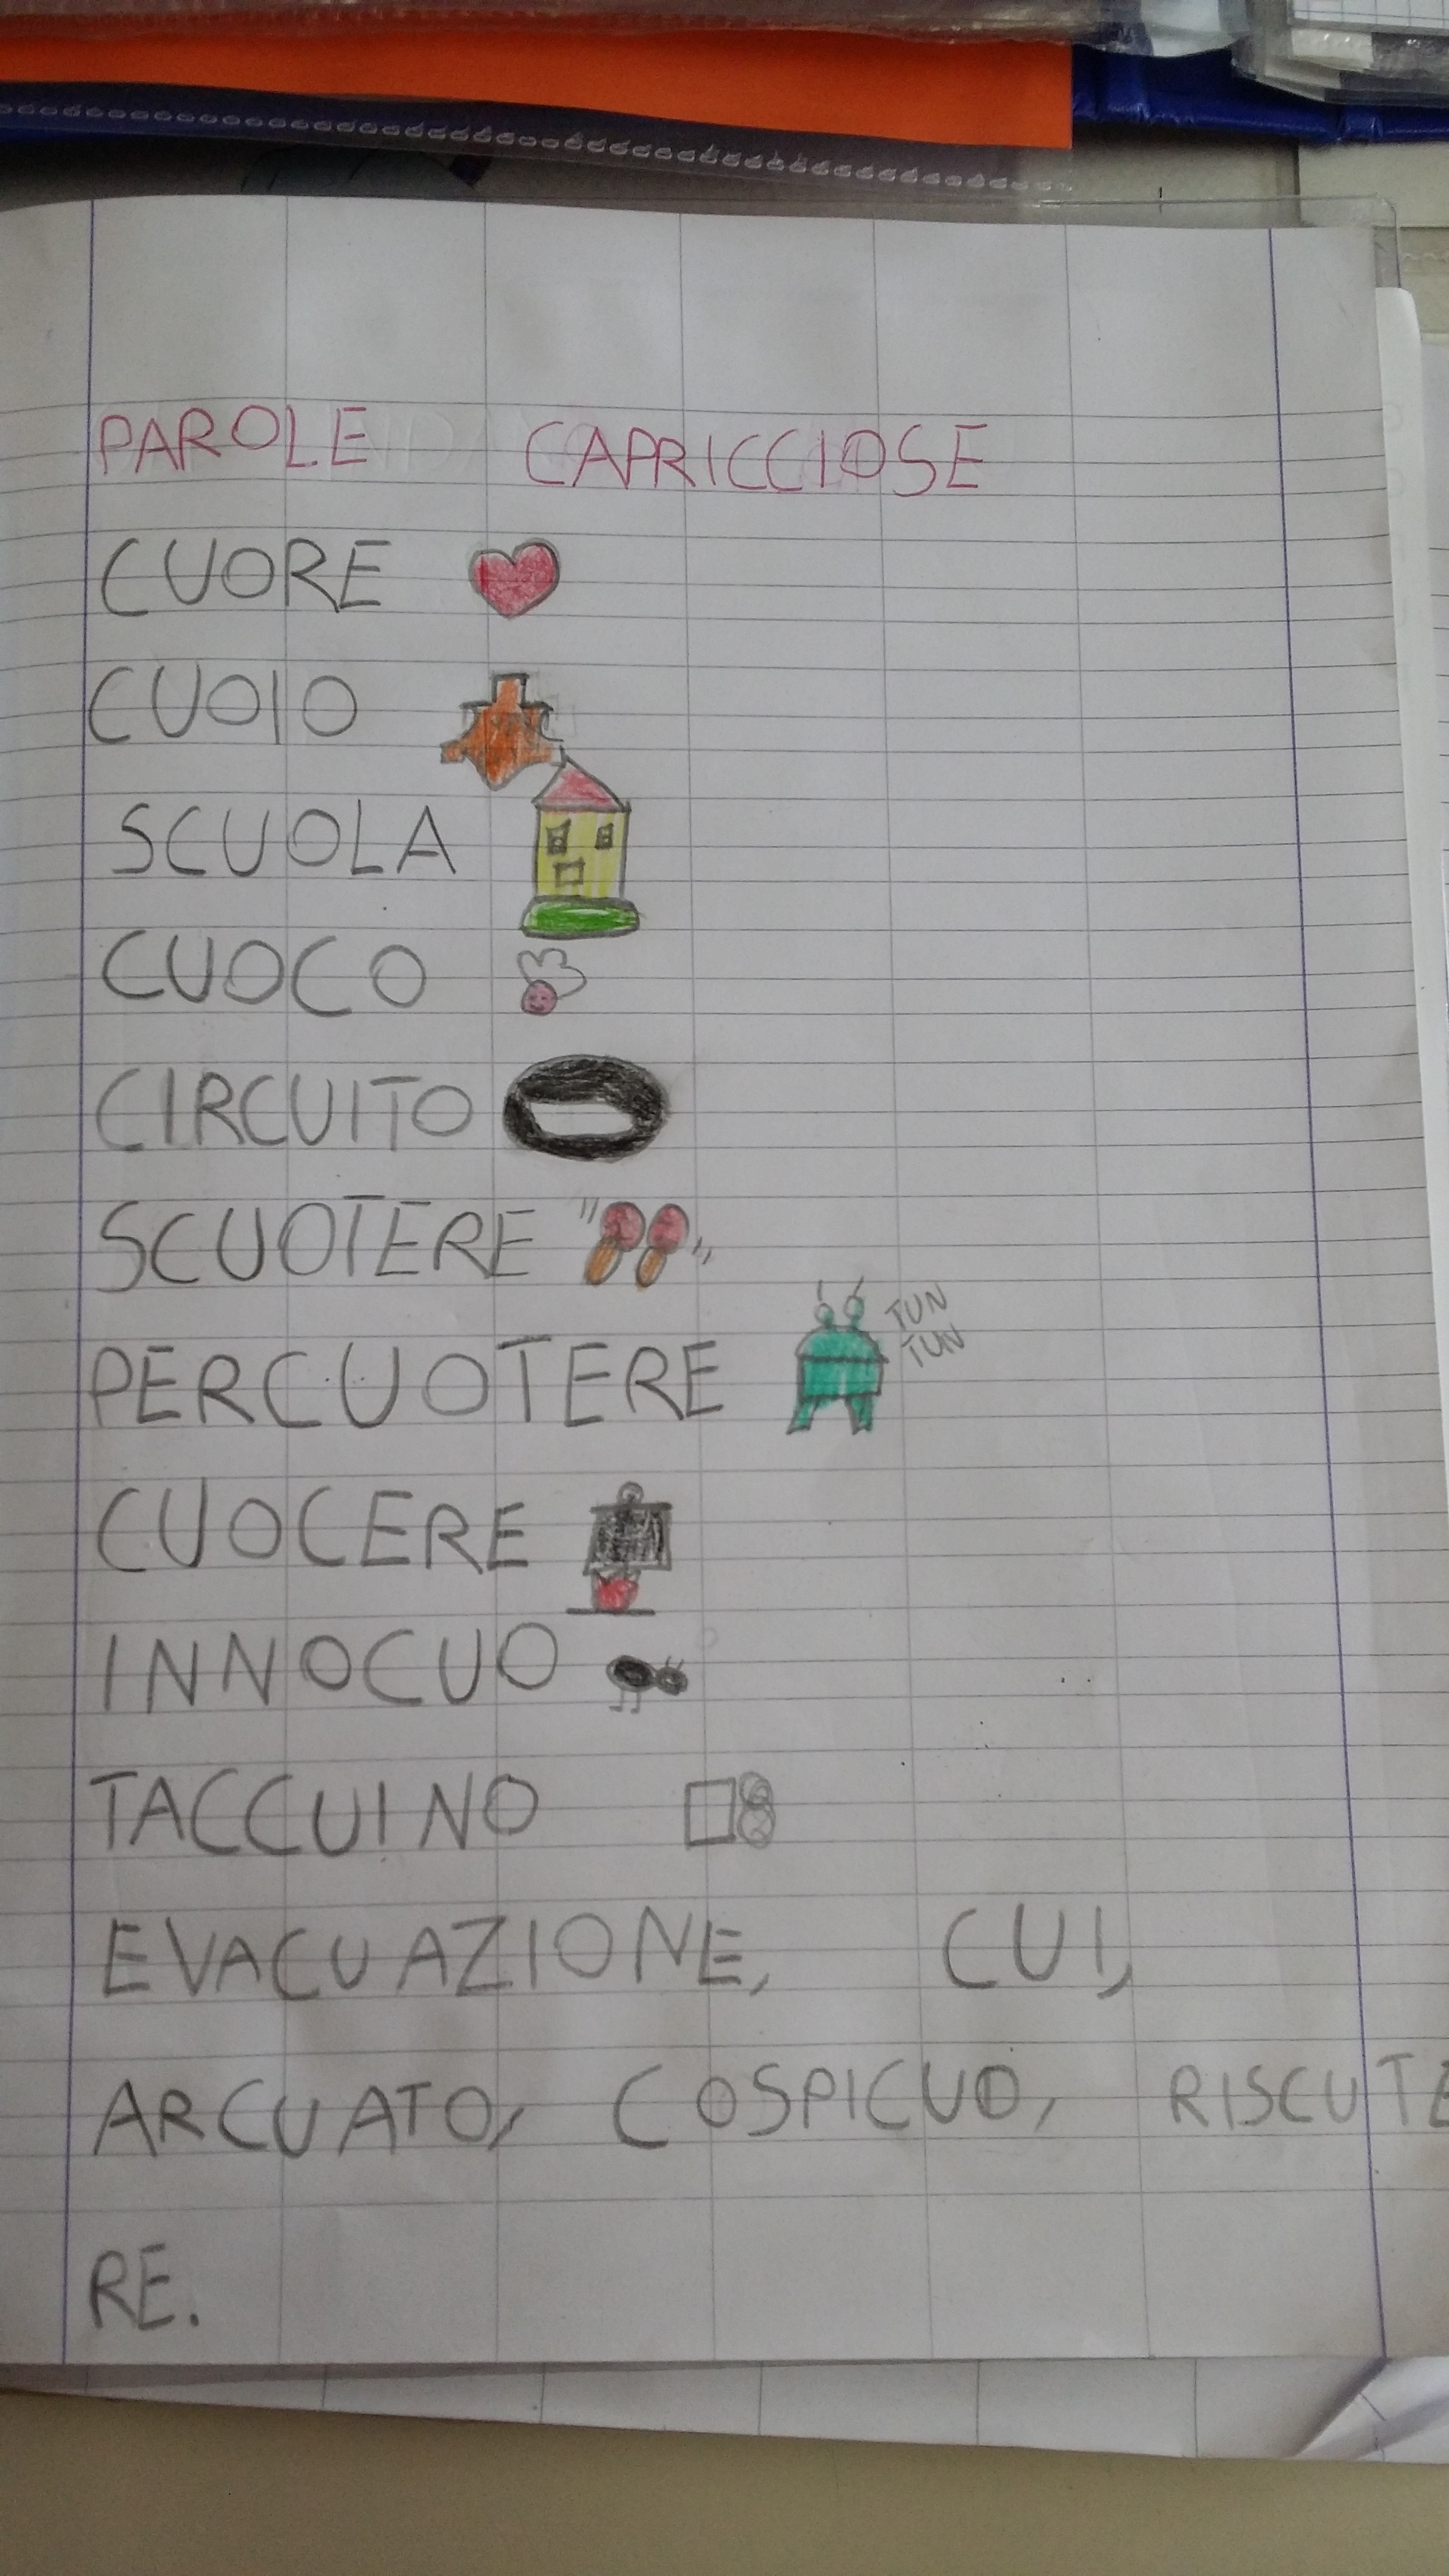 PAROLE CAPRICCIOSE
CUORE
CUOIO
SCUOLA
CUOCO
CIRCUITO
SCUOTERE
TUN
TUN
PERCUOTERE
CUOCERE
INNOCUO
TACCUINO
EVACUAZIONE, CUI,
ARCUATO, COSPICUO, RISCUTE
RE.